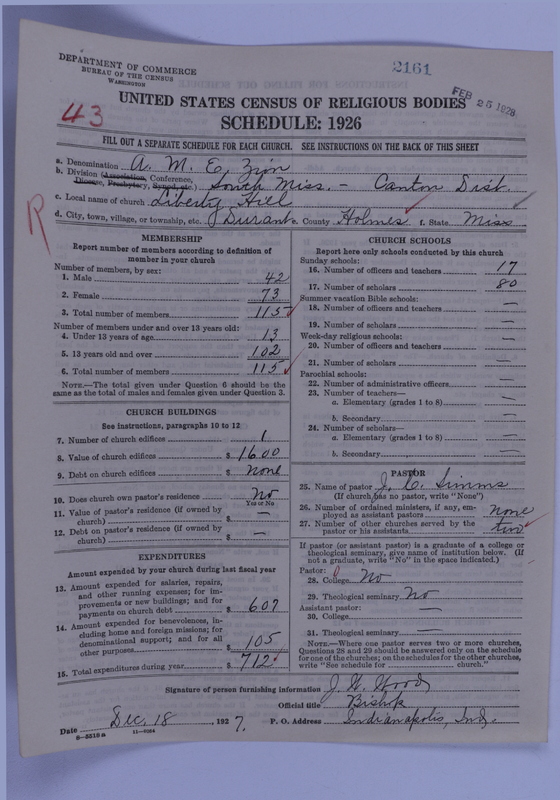 DEPARTMENT OF COMMERCE
BUREAU OF THE CENSUS
WASHINGTON
2161
FEB 25 1928
43
UNITED STATES CENSUS OF RELIGIOUS BODIES
SCHEDULE: 1926
FILL OUT A SEPARATE SCHEDULE FOR EACH CHURCH. SEE INSTRUCTIONS ON THE BACK OF THIS SHEET
a. Denomination A. M. E. Zion
b. Division (Association, Conference, Diocese, Presbytery, Synod, etc.) South Miss. - Canton Dist.
c. Local name of church Liberty Hill
R
d. City, town, village, or township, etc. Durant e. County Holmes f. State Miss
MEMBERSHIP
Report number of members according to definition of
member in your church
Number of members, by sex:
1. Male 42
2. Female 73
3. Total number of members 115
Number of members under and over 13 years old:
4. Under 13 years of age 13
5. 13 years old and over 102
6. Total number of members 115
NOTE.—The total given under Question 6 should be
same as the total of males and females given under Question 3.
CHURCH BUILDINGS
See instructions, paragraphs 10 to 12
7. Number of church edifices 1
8. Value of church edifices $1600
9. Debt on church edifices $ none
10. Does church own pastor's residence No
Yes or No
11. Value of pastor's residence (if owned by
church) $ —
12. Debt on pastor's residence (if owned by
church) $ —
EXPENDITURES
Amount expended by church during last fiscal year
13. Amount expended for salaries, repairs,
and other running expenses; for im-
provements or new buildings; and for
payments on church debt $ 607
14. Amount expended for benevolences, in-
cluding home and foreign missions; for
denominational support; and for all
other purposes $ 105
15. Total expenditures during year $ 712
CHURCH SCHOOLS
Report here only schools conducted by this church
Sunday schools:
16. Number of officers and teachers 17
17. Number of scholars 80
Summer vacation Bible schools:
18. Number of officers and teachers —
19. Number of scholars —
Week-day religious schools:
20. Number of officers and teachers —
21. Number of scholars —
Parochial schools:
22. Number of administrative officers —
23. Number of teachers—
a. Elementary (grades 1 to 8) —
b. Secondary —
24. Number of scholars—
a. Elementary (grades 1 to 8) —
b. Secondary —
PASTOR
25. Name of pastor J. C. Simms
(If church has no pastor, write "None")
26. Number of ordained ministers, if any, em-
ployed as assistant pastors none
27. Number of other churches served by the
pastor or his assistants two
If pastor (or assistant pastor) is a graduate of a college or
theological seminary, give name of institution below. (If
not a graduate, write "No" in the space indicated.)
Pastor:
28. College No
29. Theological seminary No
Assistant pastor:
30. College —
31. Theological seminary —
NOTE.—Where one pastor serves two or more churches,
Questions 28 and 29 should be answered only on the schedule
for one of the churches; on the schedules for the other churches,
write "See schedule for church."
Signature of person furnishing information J. W. Wood
Official title Bishop
Date Dec. 18, 1927. P. O. Address Indianapolis, Ind.
8-5518a 11-9064